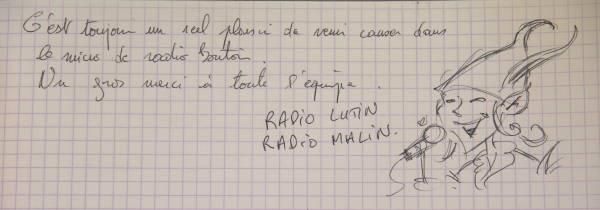 C'est toujours un réel plaisir de venir causer dans
le micro de radio Bouton.
Un gros merci à toute l'équipe.
RADIO LUTIN
RADIO MALIN.